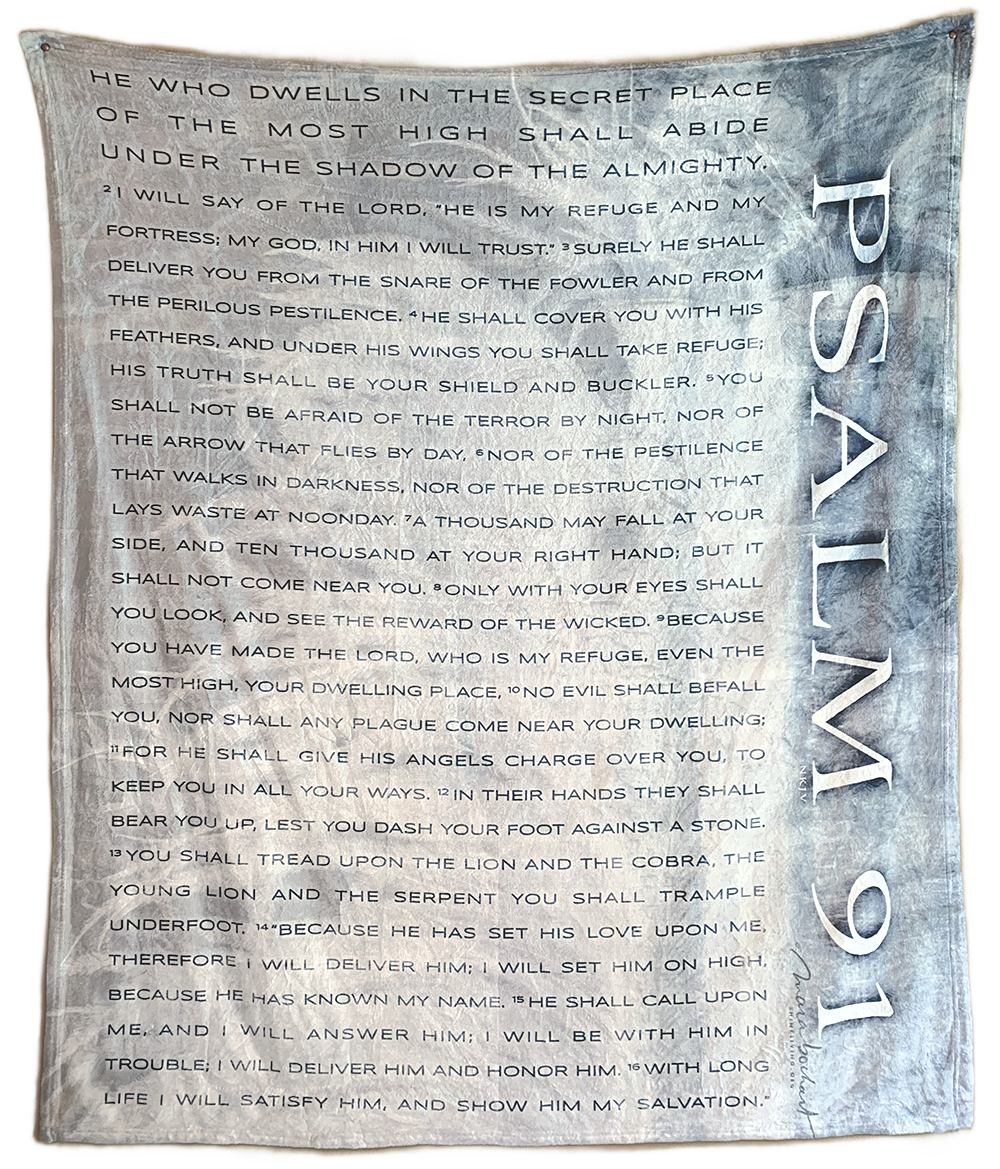 HE WHO DWELLS IN THE SECRET PLACE
OF THE MOST HIGH SHALL ABIDE
UNDER THE SHADOW OF THE ALMIGHTY.
²I WILL SAY OF THE LORD, "HE IS MY REFUGE AND MY
FORTRESS; MY GOD, IN HIM I WILL TRUST." ³SURELY HE SHALL
DELIVER YOU FROM THE SNARE OF THE FOWLER AND FROM
THE PERILOUS PESTILENCE. ⁴HE SHALL COVER YOU WITH HIS
FEATHERS, AND UNDER HIS WINGS YOU SHALL TAKE REFUGE;
HIS TRUTH SHALL BE YOUR SHIELD AND BUCKLER. ⁵YOU
SHALL NOT BE AFRAID OF THE TERROR BY NIGHT, NOR OF
THE ARROW THAT FLIES BY DAY, ⁶NOR OF THE PESTILENCE
THAT WALKS IN DARKNESS, NOR OF THE DESTRUCTION THAT
LAYS WASTE AT NOONDAY. ⁷A THOUSAND MAY FALL AT YOUR
SIDE, AND TEN THOUSAND AT YOUR RIGHT HAND; BUT IT
SHALL NOT COME NEAR YOU. ⁸ONLY WITH YOUR EYES SHALL
YOU LOOK, AND SEE THE REWARD OF THE WICKED. ⁹BECAUSE
YOU HAVE MADE THE LORD, WHO IS MY REFUGE, EVEN THE
MOST HIGH, YOUR DWELLING PLACE, ¹⁰NO EVIL SHALL BEFALL
YOU, NOR SHALL ANY PLAGUE COME NEAR YOUR DWELLING;
¹¹FOR HE SHALL GIVE HIS ANGELS CHARGE OVER YOU, TO
KEEP YOU IN ALL YOUR WAYS. ¹²IN THEIR HANDS THEY SHALL
BEAR YOU UP, LEST YOU DASH YOUR FOOT AGAINST A STONE.
¹³YOU SHALL TREAD UPON THE LION AND THE COBRA, THE
YOUNG LION AND THE SERPENT YOU SHALL TRAMPLE
UNDERFOOT. ¹⁴"BECAUSE HE HAS SET HIS LOVE UPON ME,
THEREFORE I WILL DELIVER HIM; I WILL SET HIM ON HIGH,
BECAUSE HE HAS KNOWN MY NAME. ¹⁵HE SHALL CALL UPON
ME, AND I WILL ANSWER HIM; I WILL BE WITH HIM IN
TROUBLE; I WILL DELIVER HIM AND HONOR HIM. ¹⁶WITH LONG
LIFE I WILL SATISFY HIM, AND SHOW HIM MY SALVATION."
PSALM 91
NKJV
SHINELIVING.ORG